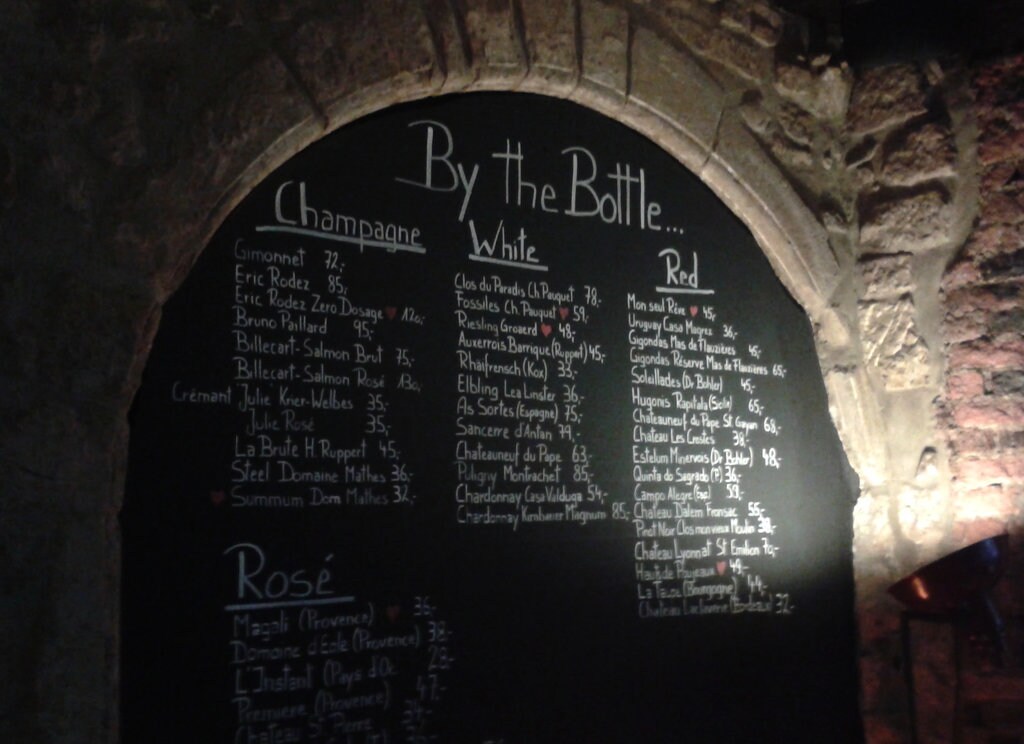 By the Bottle...
Champagne
Gimonnet 72,-
Eric Rodez 85,-
Eric Rodez Zero Dosage 120,-
Bruno Paillard 95,-
Billecart-Salmon Brut 75,-
Billecart-Salmon Rosé 130,-
Crémant Julie Krier-Welbes 35,-
Julie Rosé 35,-
La Brute H. Ruppert 45,-
Steel Domaine Mathes 36,-
Summum Dom Mathes 32,-
White
Clos du Paradis Ch. Pauquet 78,-
Fossiles Ch. Pauquet 59,-
Riesling 48,-
Auxerrois Barrique (Ruppert) 45,-
Rhäifrensch (Kox) 33,-
Elbling Lea Linster 36,-
As Sortes (Espagne) 75,-
Sancerre d'Antan 79,-
Chateauneuf du Pape 63,-
Puligny Montrachet 85,-
Chardonnay Casa Valduga 54,-
Chardonnay Magnum 85,-
Red
Mon seul Rêve 45,-
Uruguay Casa 36,-
Gigondas Mas de Flauzières 45,-
Gigondas Réserve Mas de Flauzières 65,-
Soleillades (Dr Bohler) 45,-
Hugonis 65,-
Chateauneuf du Pape St 68,-
Chateau Les 38,-
Estelum Minervois (Dr Bohler) 48,-
Quinta do Sagrado (P) 36,-
Campo Alegre (Esp) 59,-
Chateau Dalem Fronsac 55,-
Pinot Noir Clos mon vieux Moulin 38,-
Chateau Lyonnat St Emilion 70,-
Haut de 49,-
La (Bourgogne) 44,-
Chateau (Bordeaux) 32,-
Rosé
Magali (Provence) 36,-
Domaine d'Eole (Provence) 38,-
L'Instant (Pays d'Oc 28,-
Première (Provence) 47,-
Chateau St Pierre